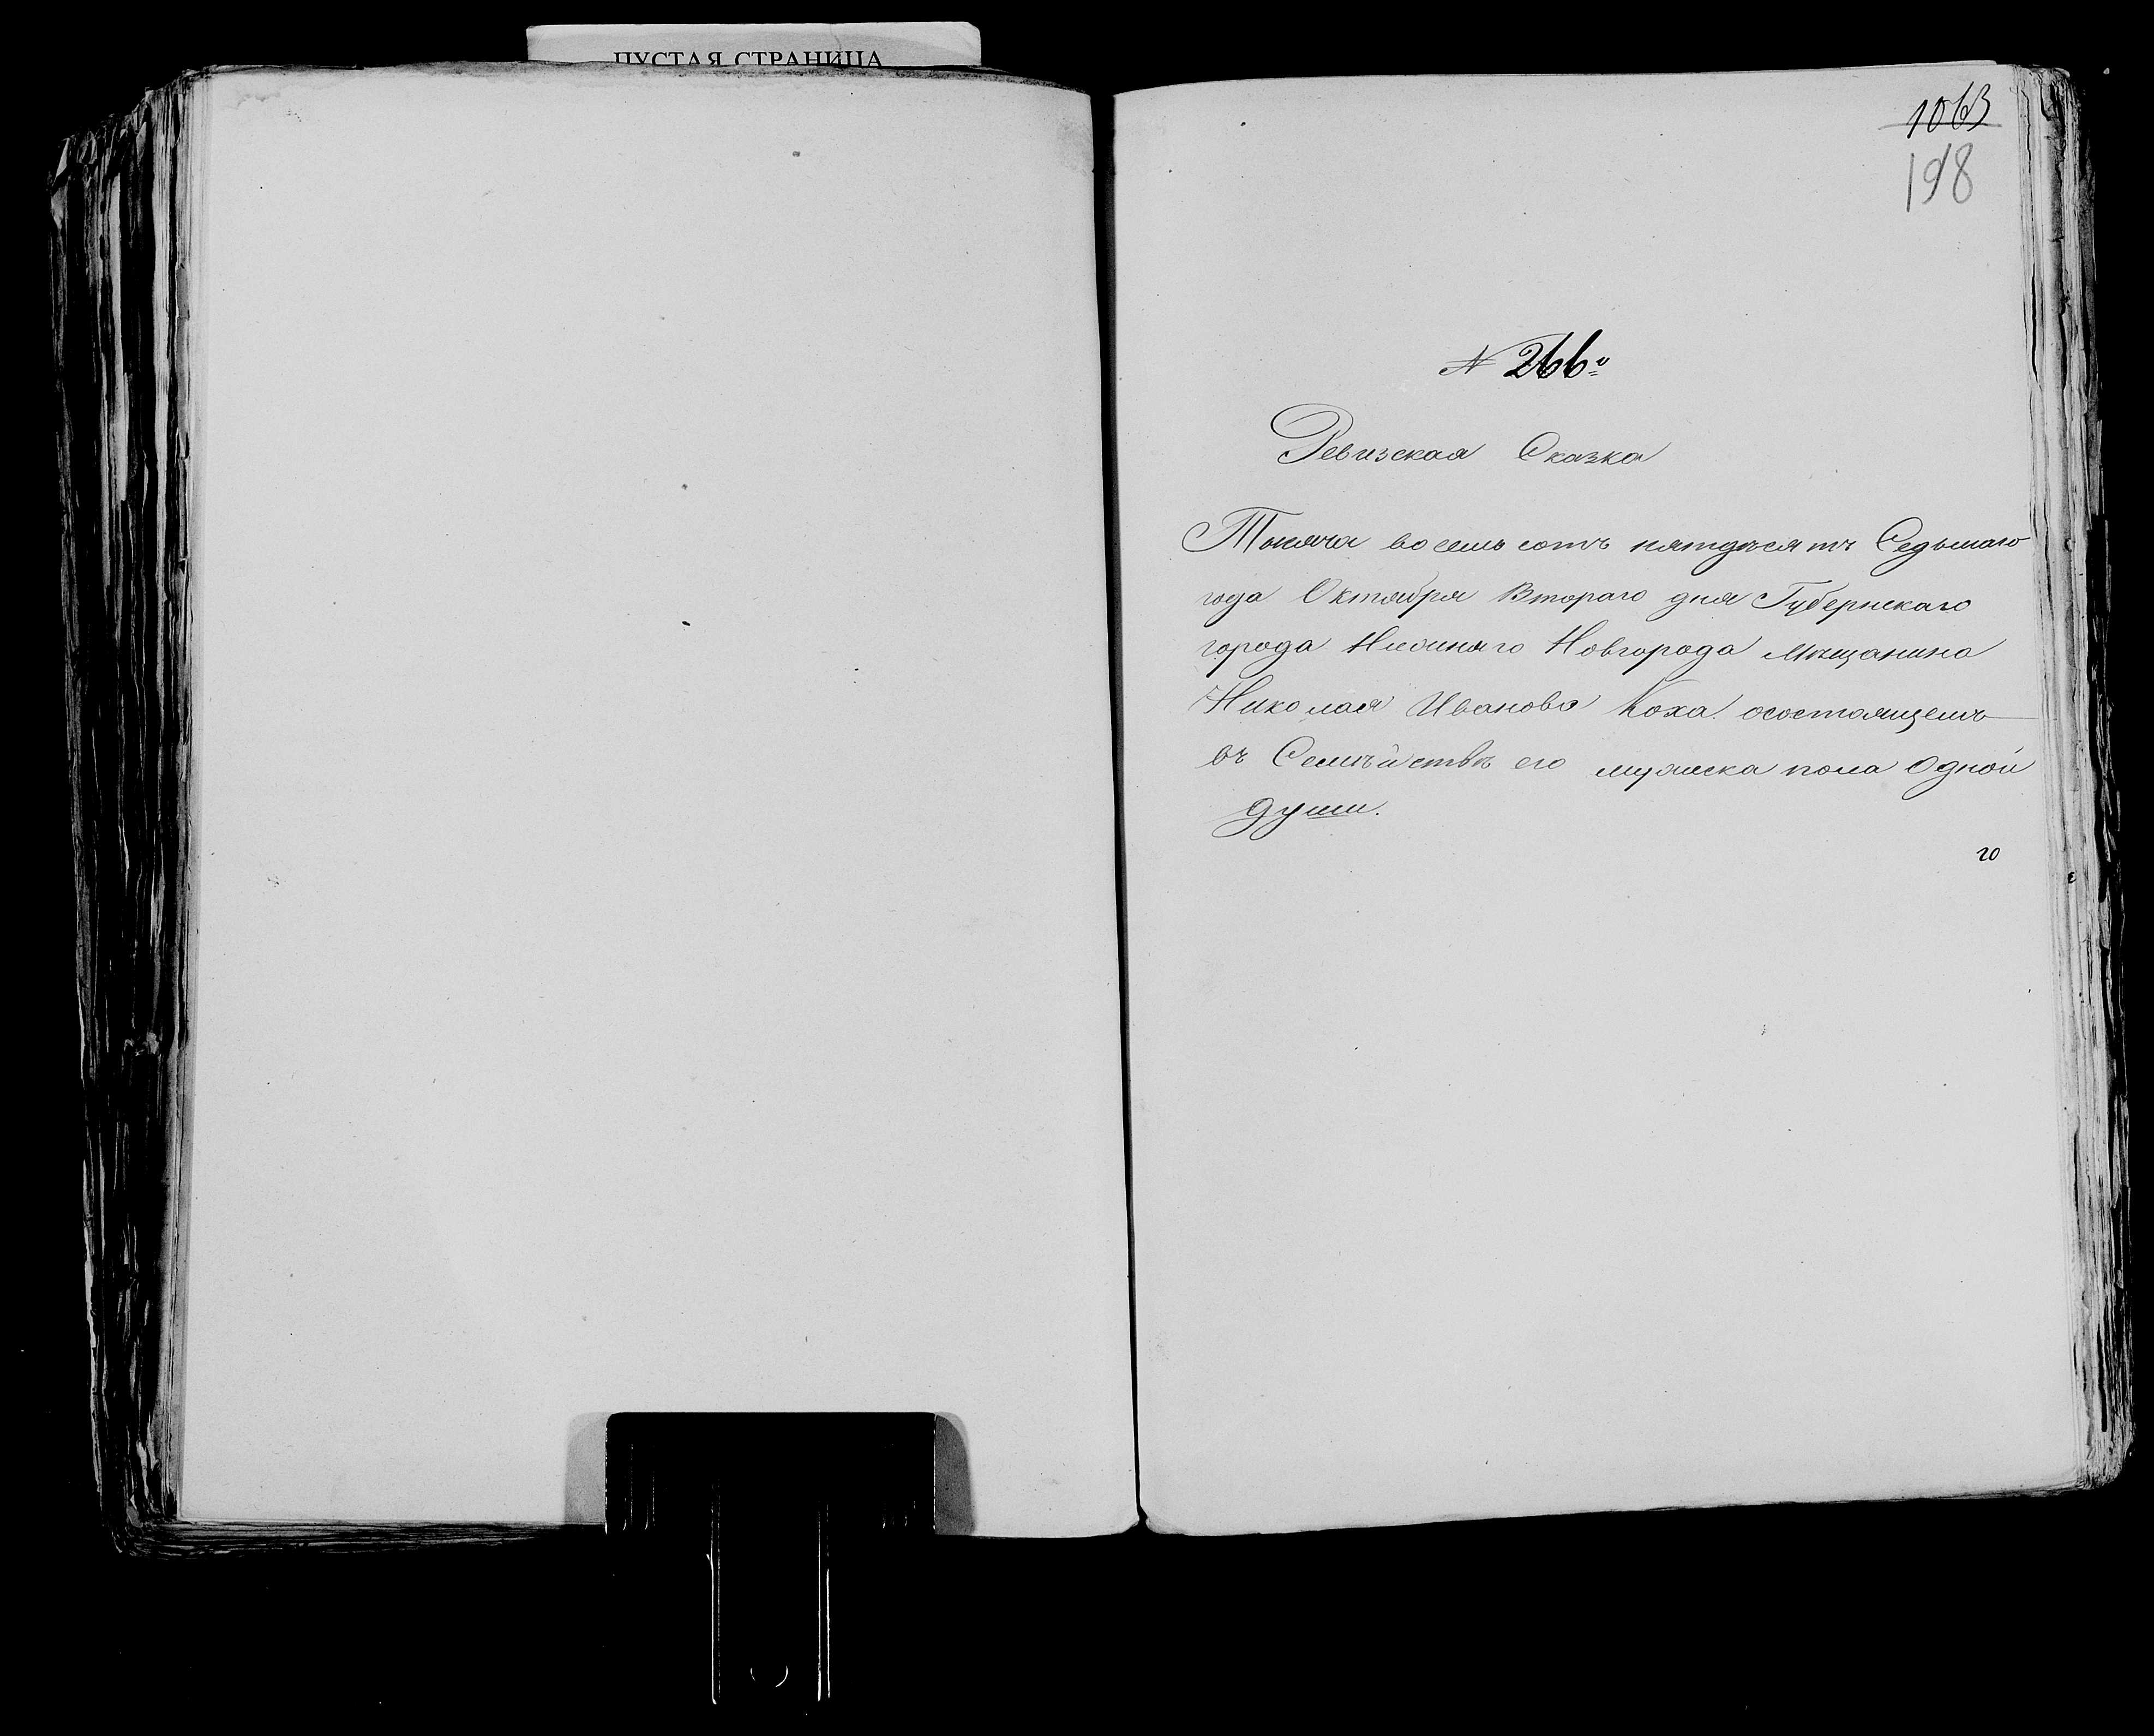 ПУСТАЯ СТРАНИЦА
1063
198
№ 266й
Ревизская Сказка
Тысяча восемьсотъ пятдесятъ Седьмаго
года Октября Втораго дня Губернскаго
города Нижняго Новгорода мѣщанина
Николая Иванова Коха. осостоящемъ
въ Семѣйствѣ его мужеска пола Одной
души.
го